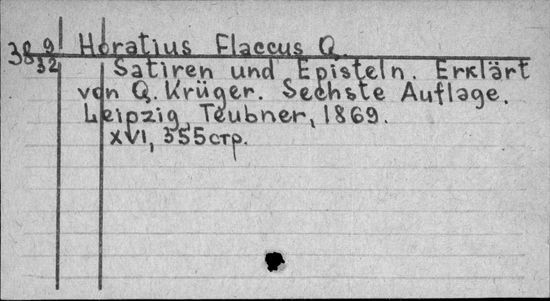 38 9/32 Horatius Flaccus Q.
Satiren und Episteln. Erklärt
von Q. Krüger. Sechste Auflage.
Leipzig, Teubner, 1869.
XVI, 355стр.